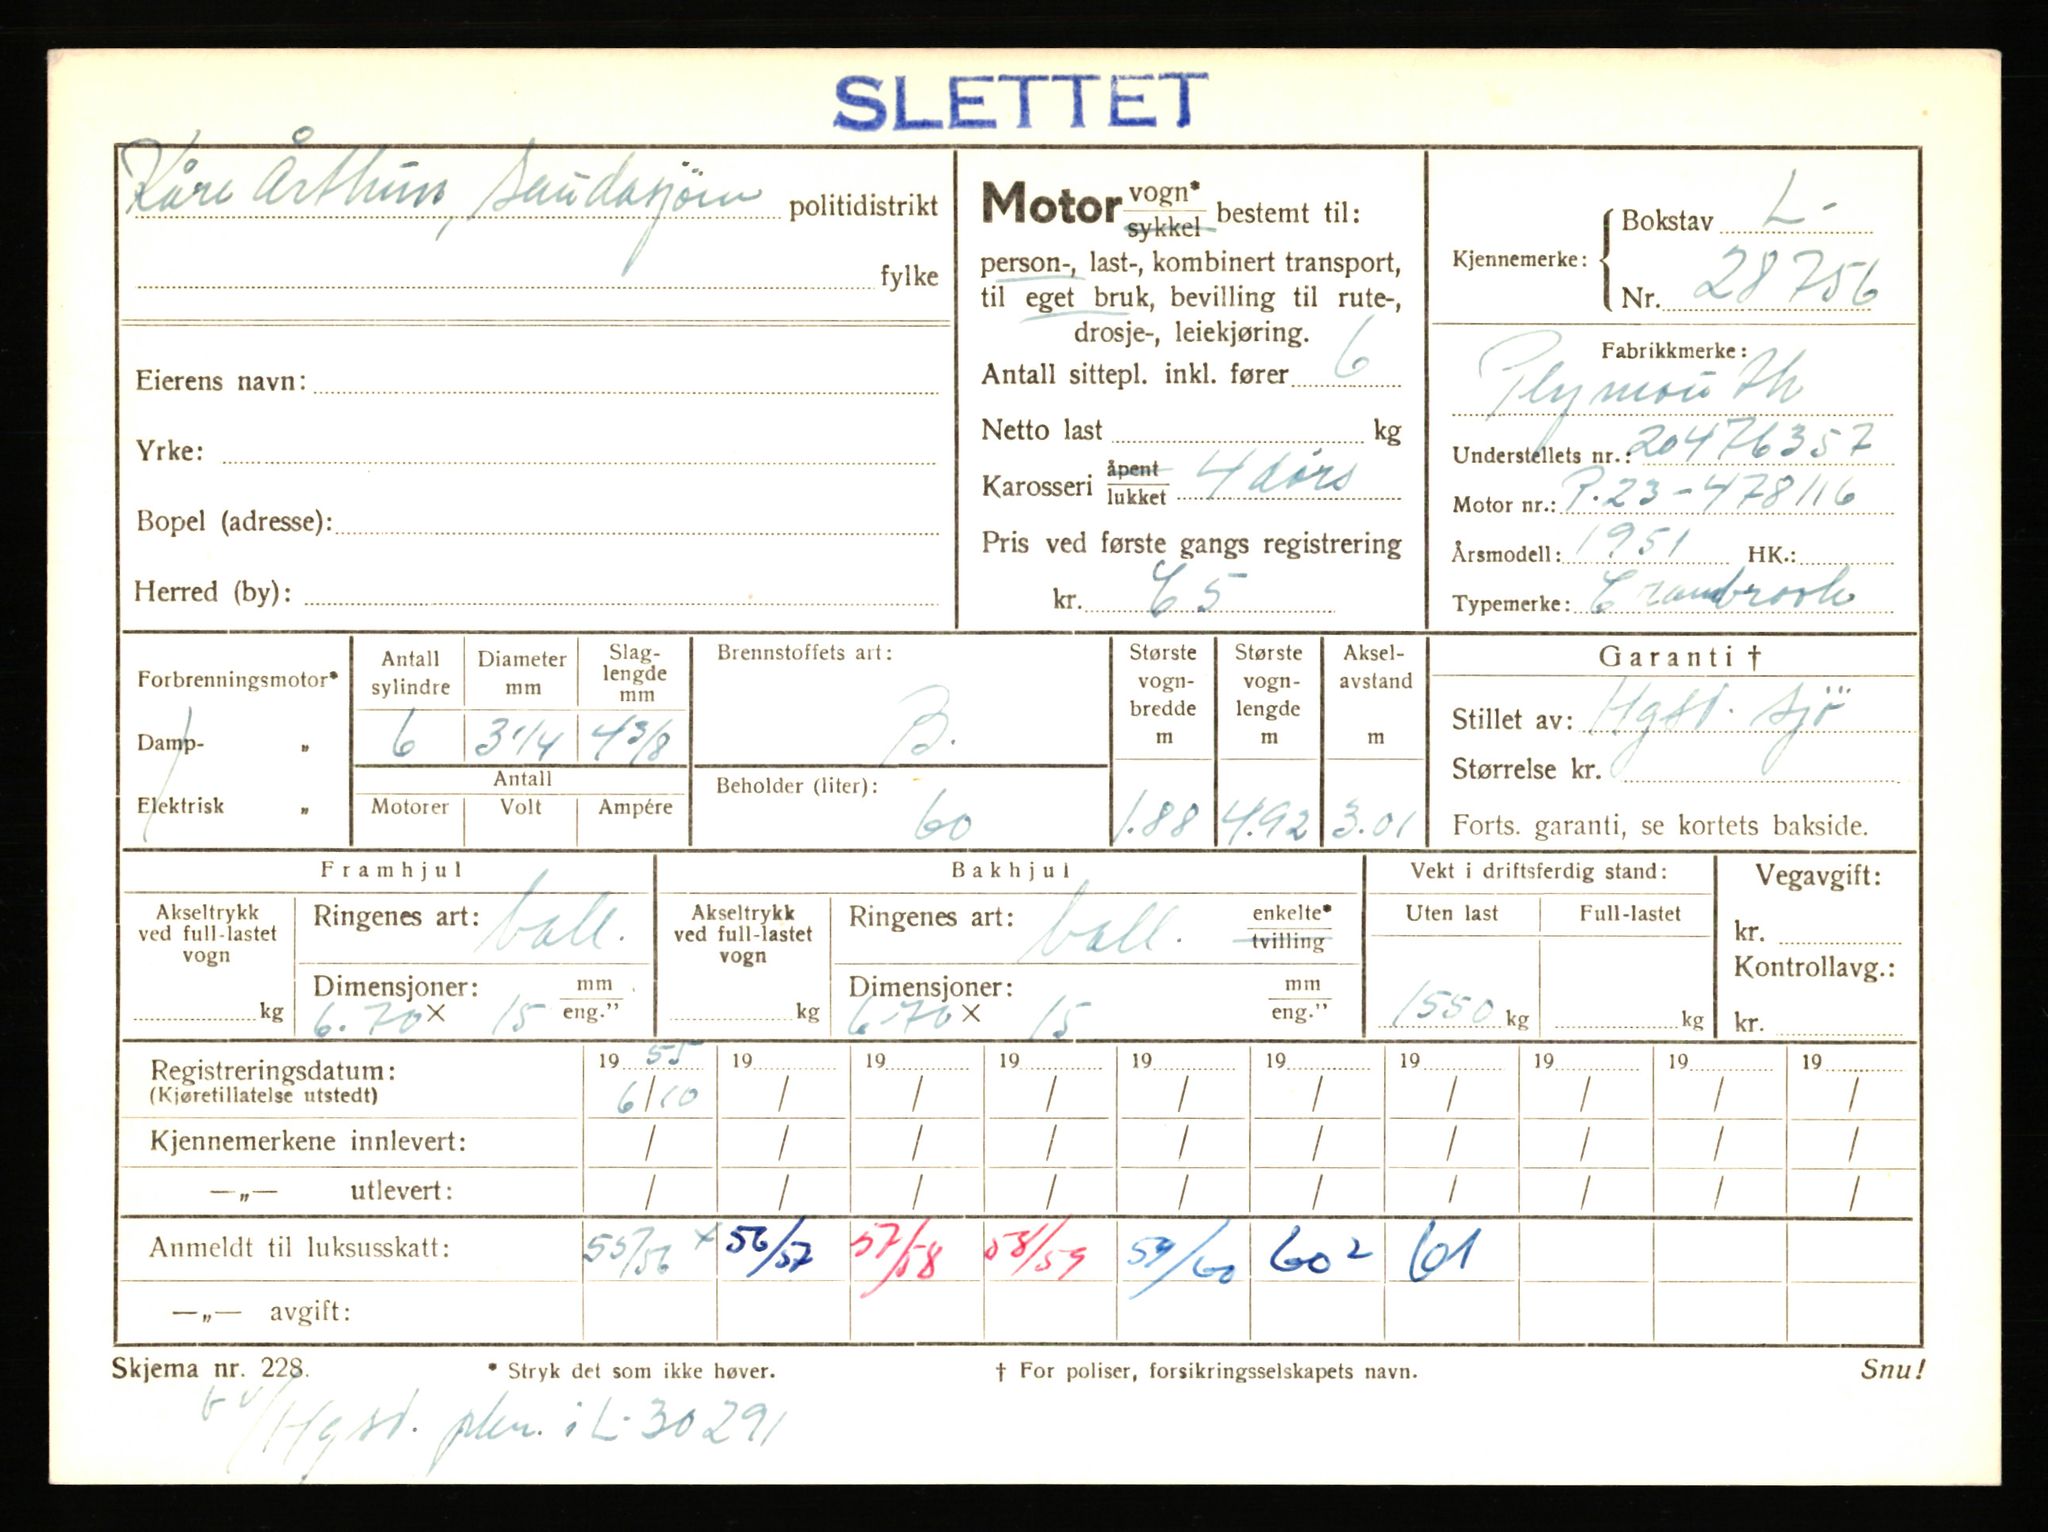 SLETTET
Kåre Årthun, Saudasjøen politidistrikt
fylke
Eierens navn:
Yrke:
Bopel (adresse):
Herred (by):
Motor vogn* / sykkel bestemt til:
person-, last-, kombinert transport,
til eget bruk, bevilling til rute-,
drosje-, leiekjøring.
Antall sittepl. inkl. fører 6
Netto last kg
Karosseri åpent / lukket 4 dørs
Pris ved første gangs registrering
kr. 65
Kjennemerke: Bokstav L-
Nr. 28756
Fabrikkmerke:
Plymouth
Understellets nr.: 20476357
Motor nr.: P.23-478116
Årsmodell: 1951 HK.:
Typemerke: Cranbrook
Forbrenningsmotor*
Damp- „
Elektrisk „
Antall sylindre Diameter mm Slag-lengde mm
6 3 1/4 4 3/8
Antall
Motorer Volt Ampére
Brennstoffets art:
B.
Beholder (liter):
60
Største vogn-bredde m
1.88
Største vogn-lengde m
4.92
Aksel-avstand m
3.01
Garanti †
Stillet av: Hgsd. sjö
Størrelse kr.
Forts. garanti, se kortets bakside.
Framhjul
Akseltrykk ved full-lastet vogn
kg
Ringenes art: ball.
Dimensjoner: mm / eng."
6.70 × 15
Bakhjul
Akseltrykk ved full-lastet vogn
kg
Ringenes art: ball. enkelte* / tvilling
Dimensjoner: mm / eng."
6-70 × 15
Vekt i driftsferdig stand:
Uten last Full-lastet
1550 kg kg
Vegavgift:
kr.
Kontrollavg.:
kr.
Registreringsdatum: 19 55 19 19 19 19 19 19 19 19 19
(Kjøretillatelse utstedt) 6/10 / / / / / / / / /
Kjennemerkene innlevert: / / / / / / / / / /
—„— utlevert: / / / / / / / / / /
Anmeldt til luksusskatt: 55/56 x 56/57 57/58 58/59 59/60 60² 61
—„— avgift:
Skjema nr. 228. * Stryk det som ikke høver. † For poliser, forsikringsselskapets navn. Snu!
Hgsd. i L-30291